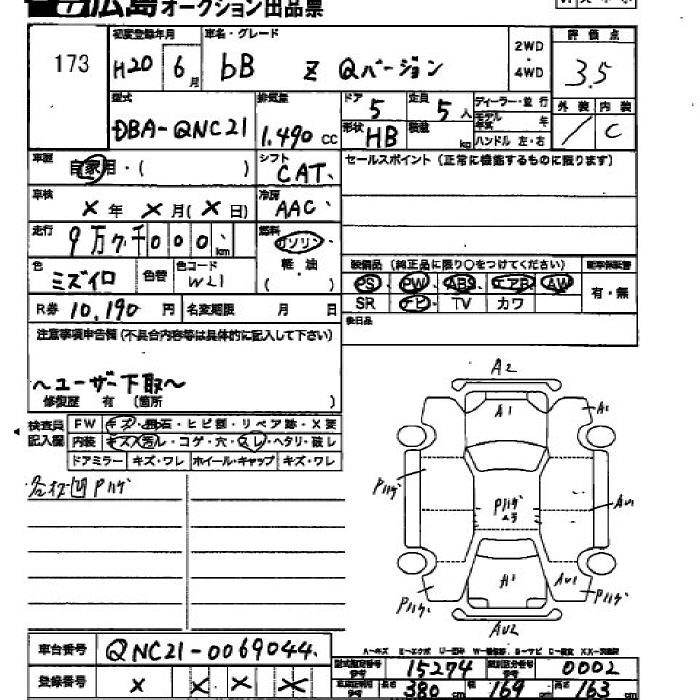 広島オークション出品票
173
初度登録年月
車名・グレード
H20 6月 bB Z Qバージョン
2WD
・
4WD
評価点
3.5
外装 内装
/ C
型式
DBA-QNC21
排気量
1.490 cc
ドア 5 定員 5人
形状 HB 積載 kg
ディーラー・並行
モデル年式 年
ハンドル 左・右
車歴 自家用・( )
シフト CAT
セールスポイント(正常に機能するものに限ります)
車検 X年 X月(X日)
冷房 AAC
走行 9万7千000km
燃料 ガソリン
軽・油
( )
色 ミズイロ 色替 色コード W21
装備品(純正品に限り○をつけてください)
PS PW ABS エアB AW
SR ナビ TV カワ
有・無
後日品
R券 10,190円 名変期限 月 日
注意事項申告欄(不具合内容等は具体的に記入して下さい)
~ユーザー下取~
修復歴 有 (箇所 )
検査員記入欄
FW キズ・飛石・ヒビ割・リペア跡・X要
内装 キズ・汚レ・コゲ・穴・スレ・ヘタリ・破レ
ドアミラー キズ・ワレ ホイール・キャップ キズ・ワレ
Pハゲ
A2
A1
A1
Pハゲ
Pハゲ
ムラ
AU1
A1
AU1
Pハゲ
Pハゲ
AU2
車台番号 QNC21-0069044
型式指定番号 15274 類別区分番号 0002
登録番号 X X X X
長さ 380cm 幅 169cm 高さ 163cm